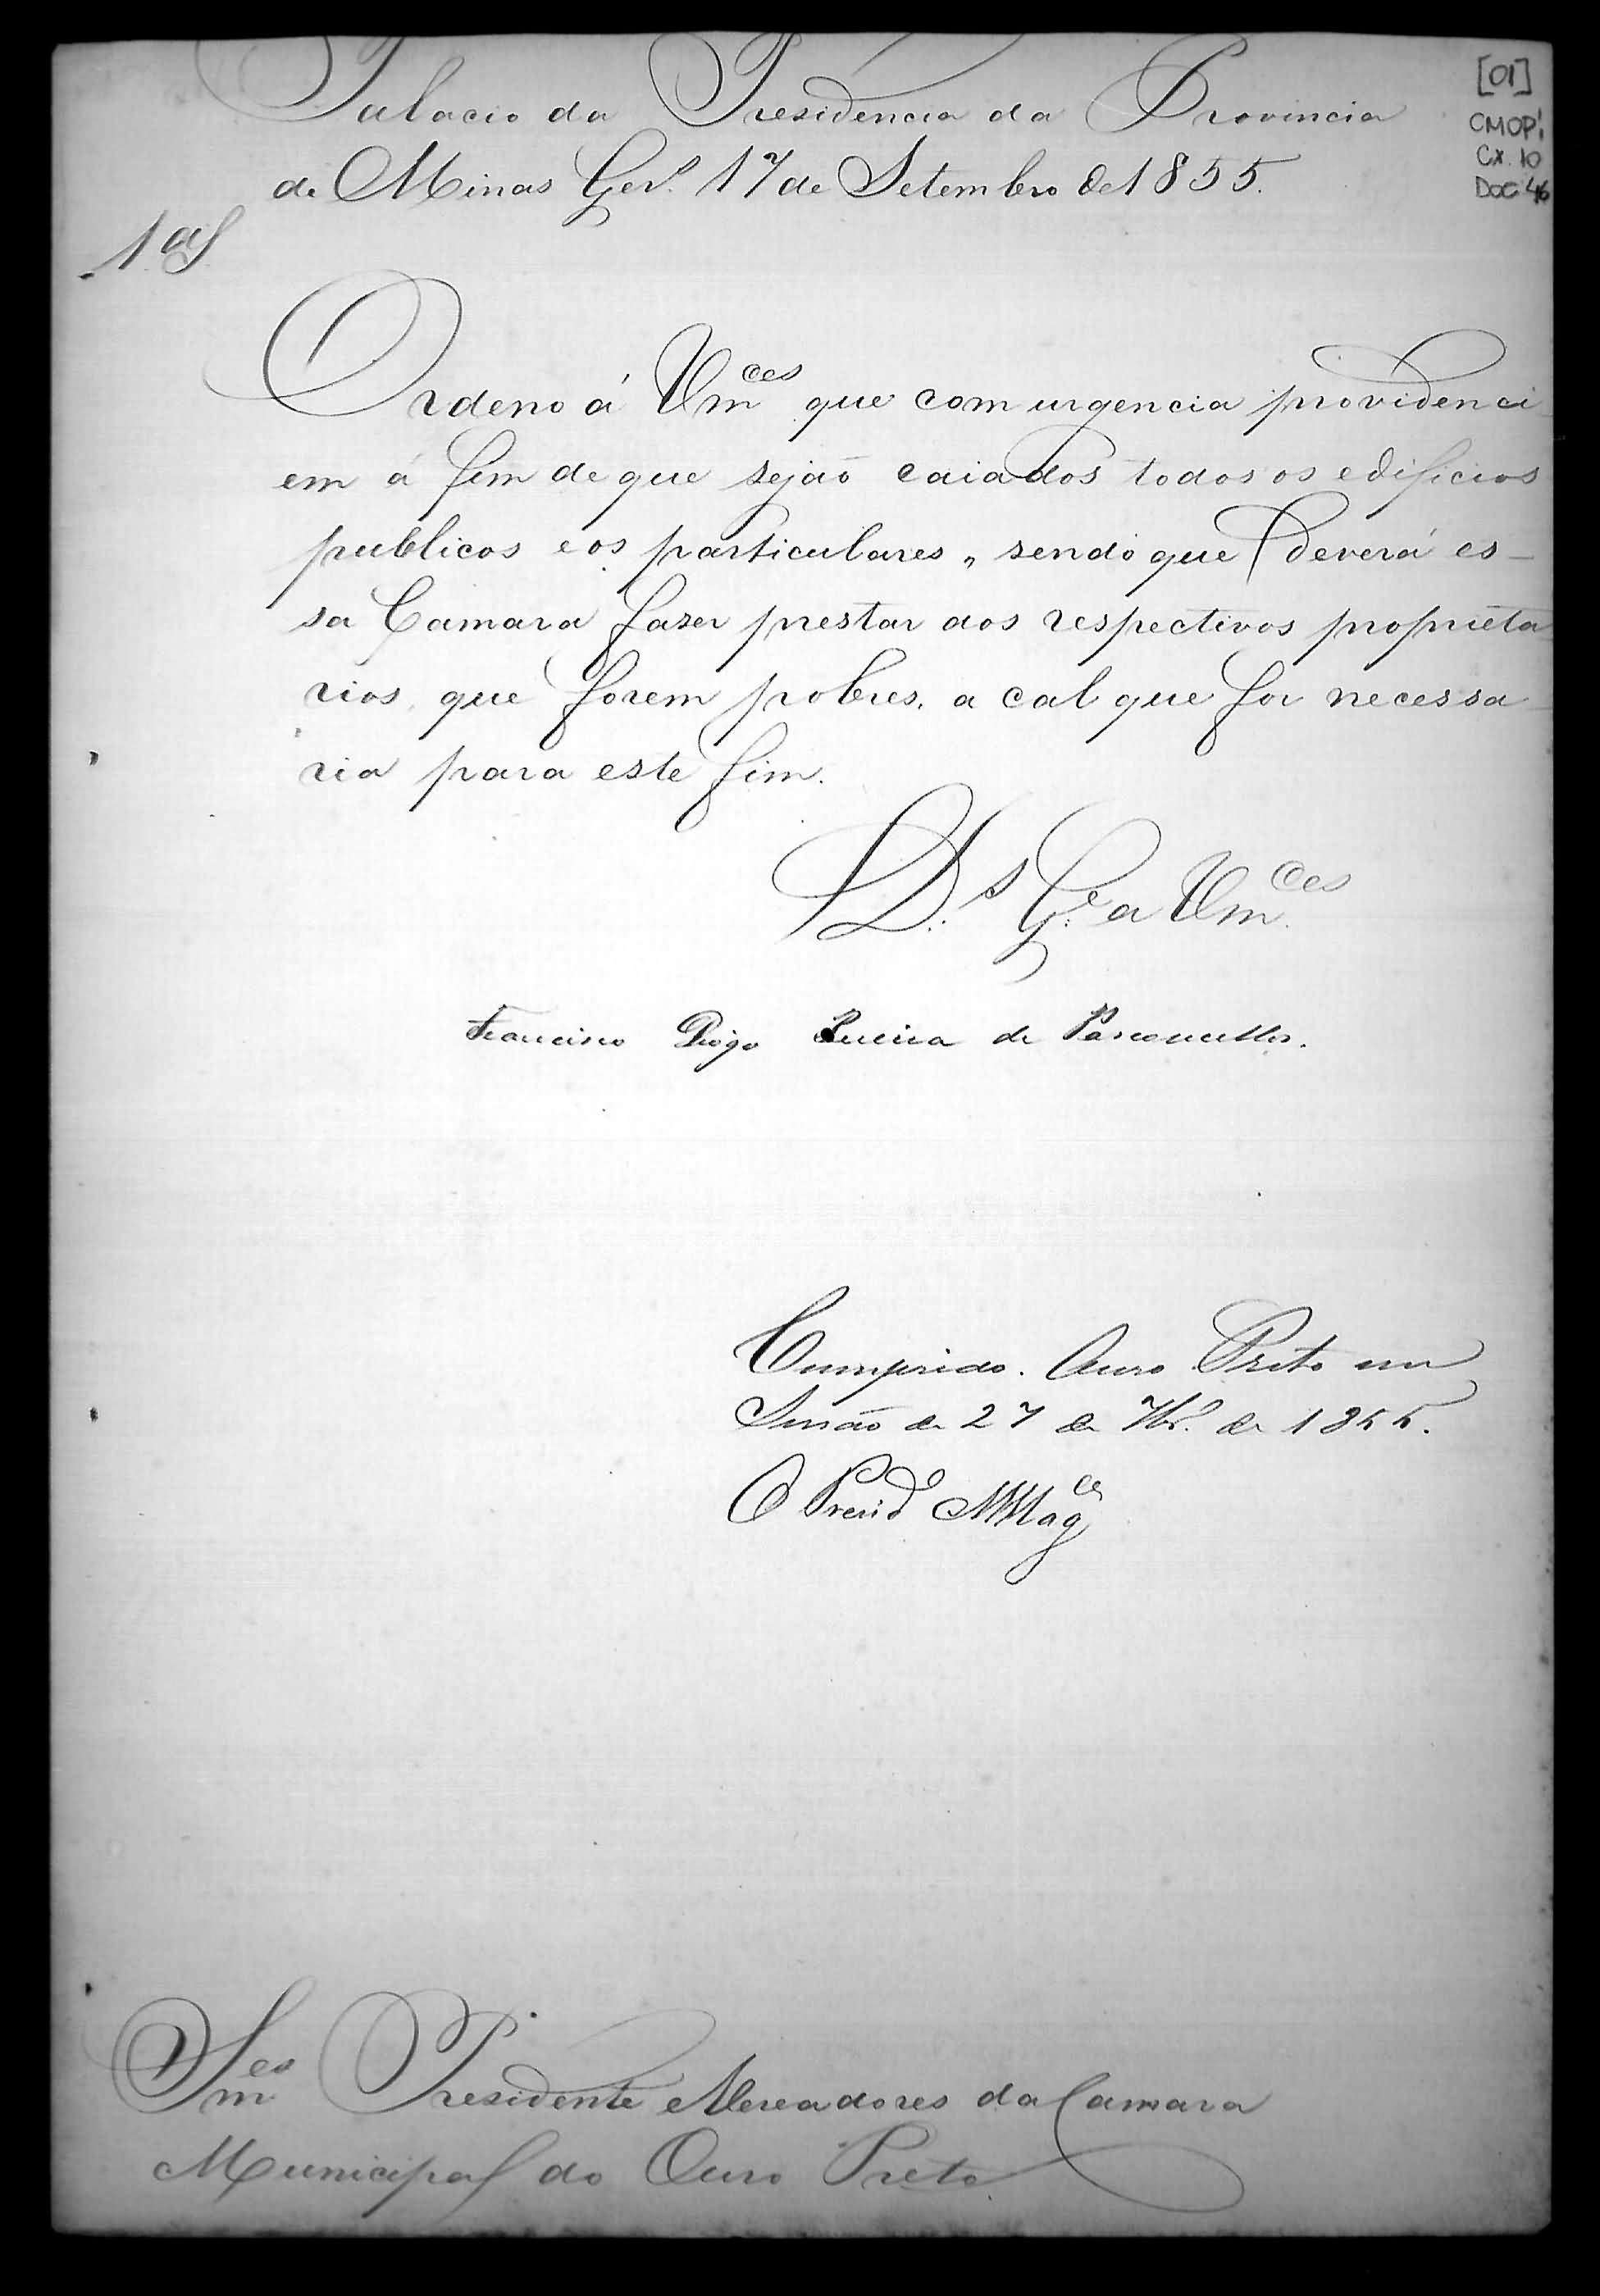 [01]
CMOP
Cx. 10
Doc 46
Palacio da Presidencia da Provincia
de Minas Ger.s 17 de Setembro de 1855.
1.aS
Ordeno á Vmces que com urgencia providenci
em á fim de que sejão caiados todos os edificios
publicos e os particulares, sendo que deverá es-
sa Camara faser prestar aos respectivos proprieta
rios, que forem pobres, a cal que for necessa
ria para este fim.
D.s G.e a Vmces
Francisco Diogo Pereira de Vasconcellos.
Cumprido. Ouro Preto em
Sessão de 27 de 7br.o de 1855.
O Presid.
Presidente e Vereadores da Camara
Municipal do Ouro Preto